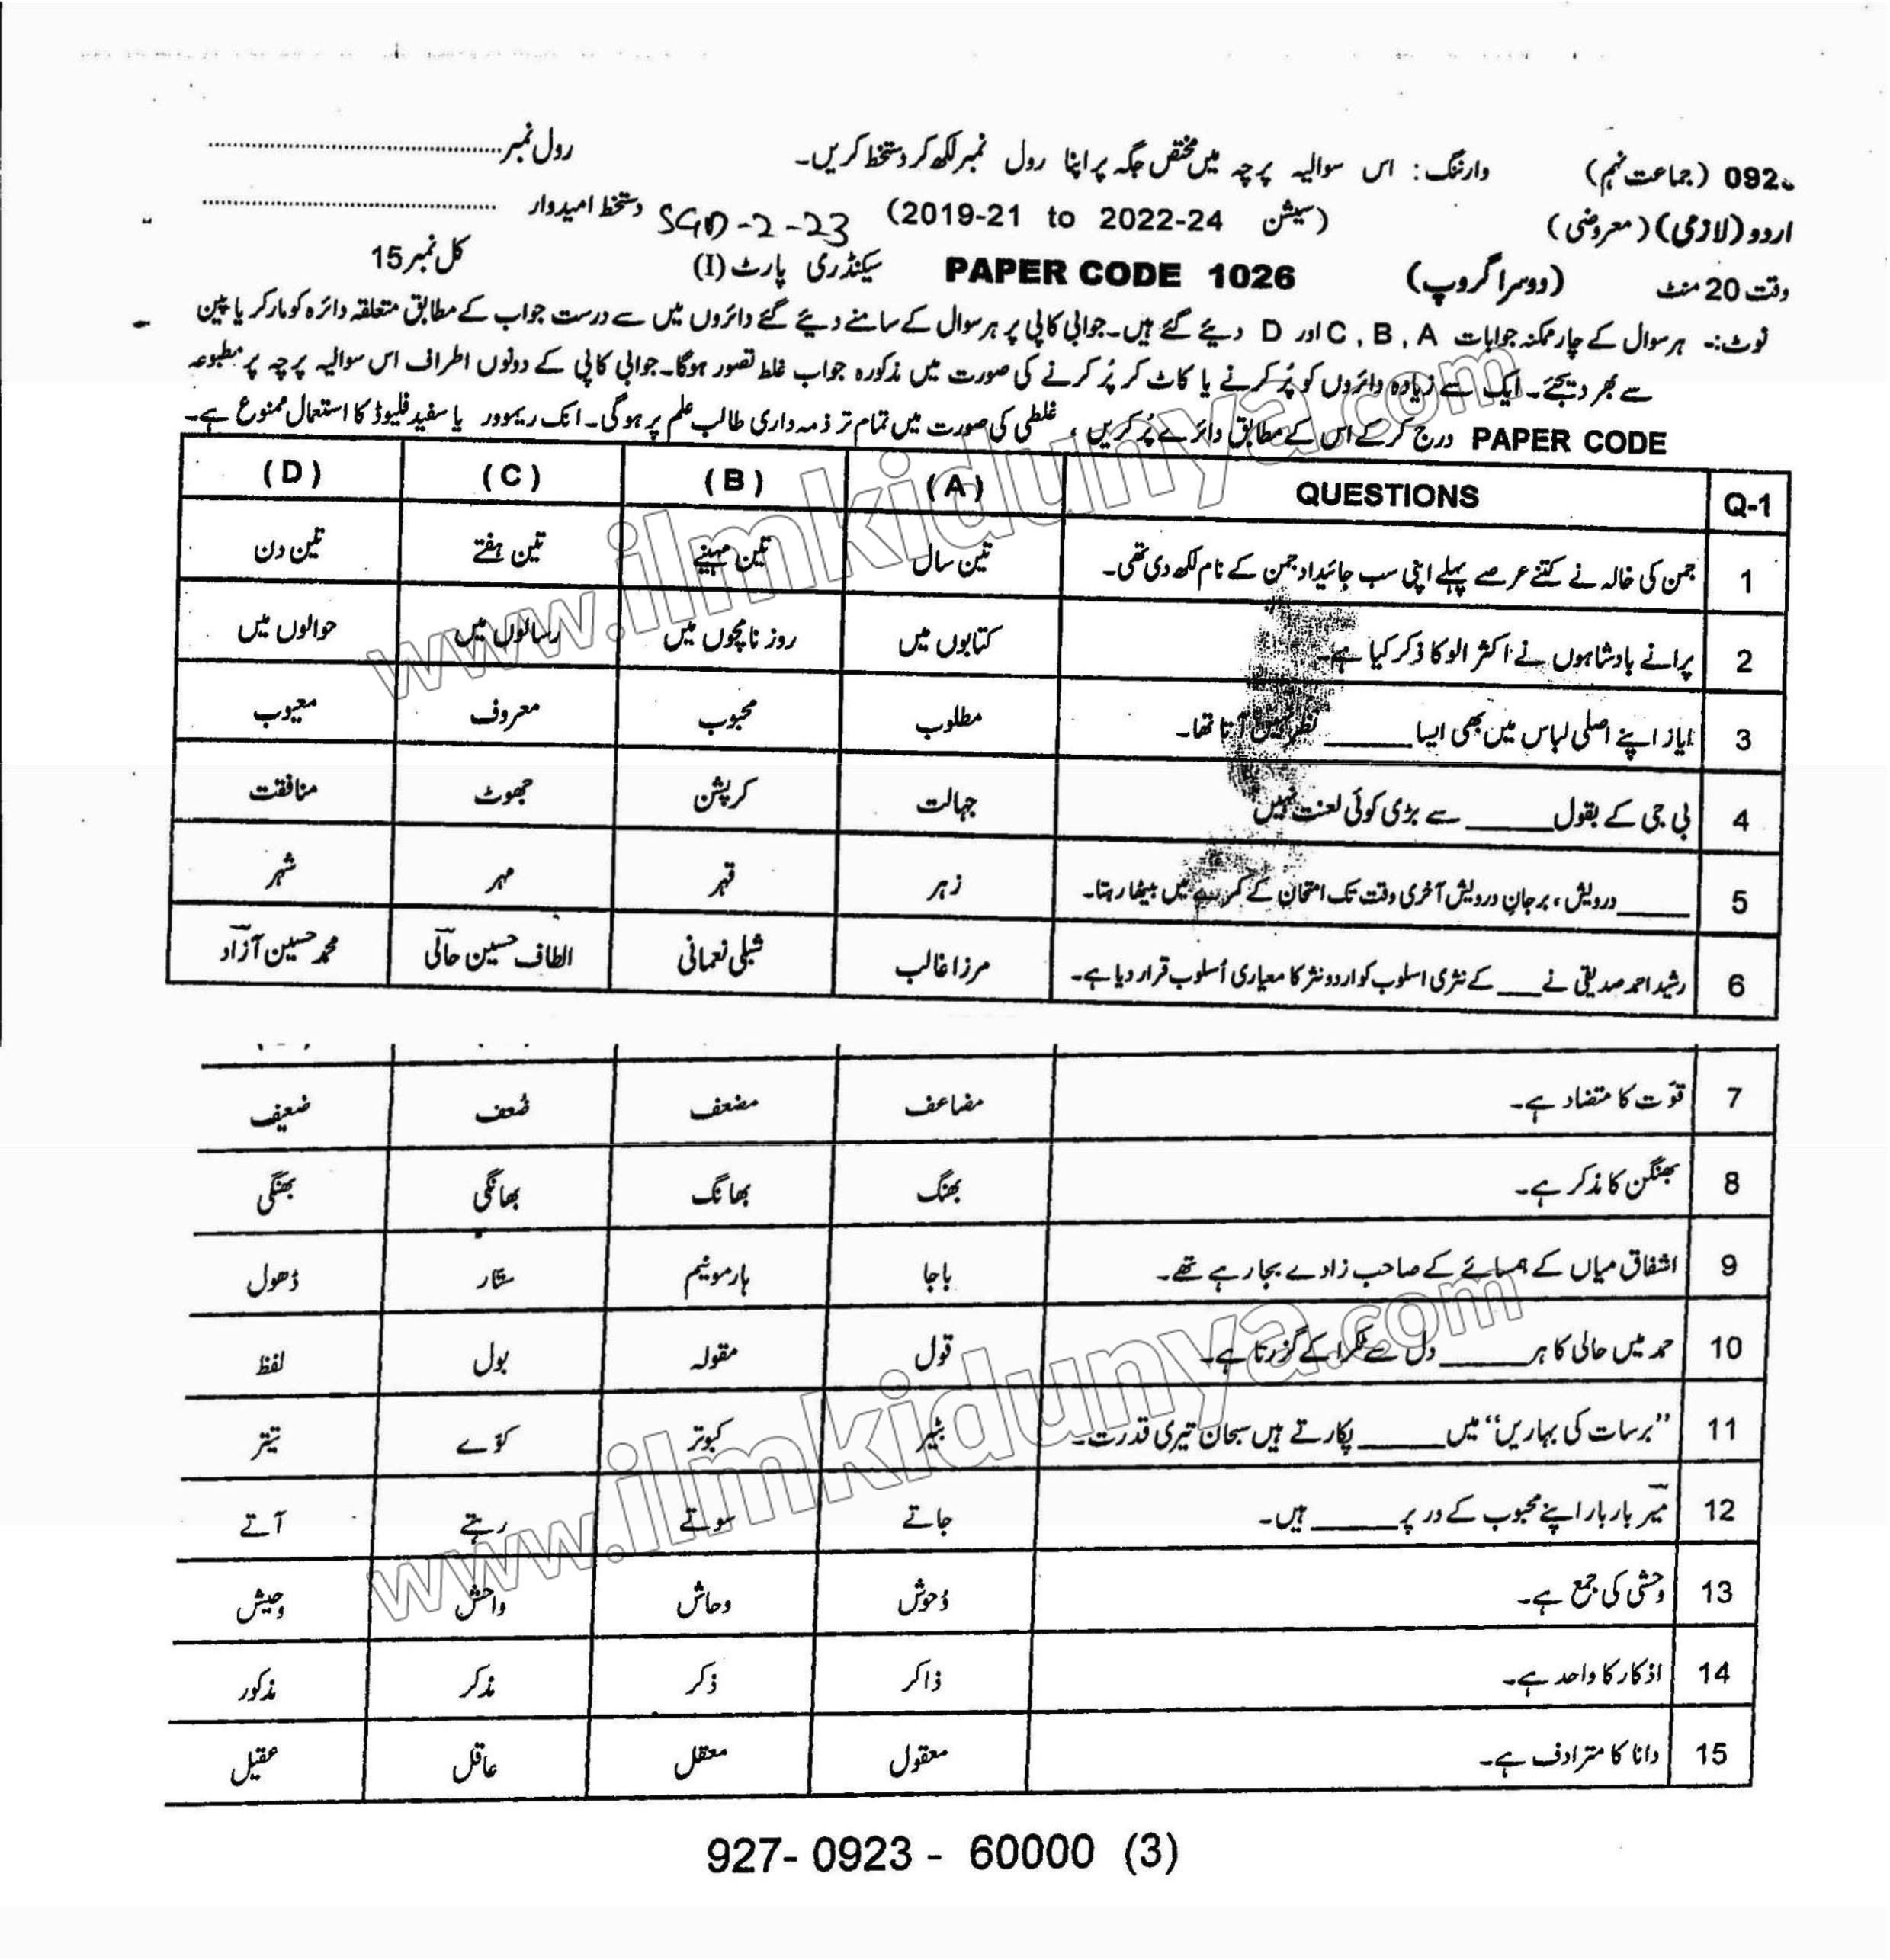 092 (جماعت نہم) وارننگ: اس سوالیہ پرچہ میں مختص جگہ پر اپنا رول نمبر لکھ کر دستخط کریں۔ رول نمبر
اردو (لازمی) (معروضی) (سیشن 2019-21 to 2022-24) SGD-2-23 دستخط امیدوار
وقت 20 منٹ (دوسرا گروپ) PAPER CODE 1026 سیکنڈری پارٹ (I) کل نمبر 15
نوٹ:- ہر سوال کے چار ممکنہ جوابات A , B , C اور D دیئے گئے ہیں۔ جوابی کاپی پر ہر سوال کے سامنے دیئے گئے دائروں میں سے درست جواب کے مطابق متعلقہ دائرہ کو مارکر یا پین
سے بھر دیجئے۔ ایک سے زیادہ دائروں کو پُر کرنے یا کاٹ کر پُر کرنے کی صورت میں مذکورہ جواب غلط تصور ہوگا۔ جوابی کاپی کے دونوں اطراف اس سوالیہ پرچہ پر مطبوعہ
PAPER CODE درج کر کے اس کے مطابق دائرے پُر کریں ، غلطی کی صورت میں تمام تر ذمہ داری طالب علم پر ہوگی۔ انک ریموور یا سفید فلیوڈ کا استعمال ممنوع ہے۔
Q-1 QUESTIONS (A) (B) (C) (D)
1 جمن کی خالہ نے کتنے عرصے پہلے اپنی سب جائیداد جمن کے نام لکھ دی تھی۔ تین سال تین مہینے تین ہفتے تین دن
2 پرانے بادشاہوں نے اکثر الو کا ذکر کیا ہے۔ کتابوں میں روزنامچوں میں رسالوں میں حوالوں میں
3 ایاز اپنے اصلی لباس میں بھی ایسا ______ نظر نہیں آتا تھا۔ مطلوب محبوب معروف معیوب
4 بی جی کے بقول ______ سے بڑی کوئی لعنت نہیں جہالت کرپشن جھوٹ منافقت
5 ______ درویش ، بر جانِ درویش آخری وقت تک امتحان کے کمرے میں بیٹھا رہتا۔ زہر قہر مہر شہر
6 رشید احمد صدیقی نے ____ کے نثری اسلوب کو اردو نثر کا معیاری اُسلوب قرار دیا ہے۔ مرزا غالب شبلی نعمانی الطاف حسین حالؔی محمد حسین آزادؔ
7 قوّت کا متضاد ہے۔ مضاعف مضعف ضُعف ضعیف
8 بھنگن کا مذکر ہے۔ بھنگ بھانگ بھانگی بھنگی
9 اشفاق میاں کے ہمسائے کے صاحب زادے بجا رہے تھے۔ باجا ہارمونیم ستار ڈھول
10 حمد میں حالی کا ہر ______ دل سے ٹکرا کے گزرتا ہے۔ قول مقولہ بول لفظ
11 ”برسات کی بہاریں“ میں ______ پکارتے ہیں سبحان تیری قدرت۔ بٹیر کبوتر کوّے تیتر
12 میؔر بار بار اپنے محبوب کے در پر ______ ہیں۔ جاتے سوتے رہتے آتے
13 وحشی کی جمع ہے۔ وُحوش وحاش واحش وحیش
14 اذکار کا واحد ہے۔ ذاکر ذکر مذکر مذکور
15 دانا کا مترادف ہے۔ معقول معقل عاقل عقیل
927- 0923 - 60000 (3)
www.ilmkidunya.com
www.ilmkidunya.com